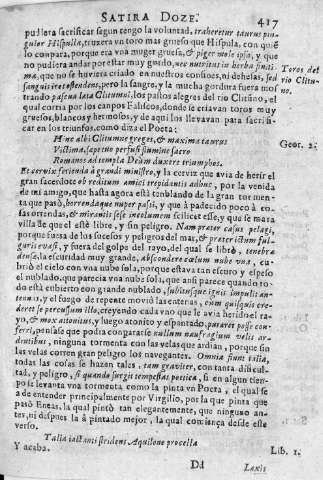 SATIRA DOZE. 417
pudiera sacrificar segun tengo la voluntad, traheretur taurus pin-
guior Hispula, truxera vn toro mas grueso que Hispula, con quiē
lo compara, porque era vna muger gruesa, & piger mole ipsa, y que
no pudiera andar por estar muy guedo, nec nutritus in herba finiti-
ma, que no se huviera criado en nuestros confines, ni dehesas, sed
sanguis ostendens, pero la sangre, y la mucha gordura fuera mos-
trando pascua læta Clitumni, los pastos alegres del rio Clitūno, el
qual corria por los canpos Faliscos, donde se criavan toros muy
gruesos, blancos y hermosos, y de aqui los llevavan para sacrifi-
car en los triunfos, como dize el Poeta:
Toros del
rio Clitu-
no.
Hinc albi Clitumne greges, & maxima taurus
Victima, sæpe tuo perfusi flumine sacro
Romanos ad templa Deûm duxere triumphos.
Geor. 2.
Et cervix ferienda à grandi ministro, y la cerviz que avia de herir el
gran sacerdote ob reditum amici trepidantis adhuc, por la venida
de mi amigo, que hasta agora está tenblando de la gran tormen-
ta que pasó, horrendaque nuper passi, y que à padecido poco à co-
sas orrendas, & mirantis sese incolumem scilicet esse, y que se mara
villa de que el esté libre, y sin peligro. Nam præter casus pelagi,
porque fuera de los sucesos y peligros del mar, & præter ictum ful-
guris evasi, y fuera del golpe del rayo, del qual se libró, tenebræ
densæ, la escuridad muy grande, abscondere cœlum nube vna, cu-
brió el cielo con vna nube sola, porque estava tan escuro y espeso
el nublado, que parecia vna nube sola, que ansi parece quando to-
do está cubierto con grande nublado, subitusque ignis impulit an-
tennas, y el fuego de repente movió las entenas, cum quisque cre-
deret se percussum illo, creyendo cada vno que le avia herido el ra-
yo, & mox attonitus, y luego atonito y espantado, putaret posse con-
ferri, pensase que podia conpararse nullum naufragium velis ar-
dentibus, ninguna tormenta con las velas que ardian, porque sin
las velas corren gran peligro los navegantes. Omnia fiunt talia,
todas las cosas se hazen tales, tam graviter, con tanta dificul-
tad, y peligro, si quando surgit tempestas poetica, si en algun tien-
po se levanta vna tormenta como la pinta vn Poeta, el qual se
a de entender principalmente por Virgilio, por la que pinta que
pasó Eneas, la qual pintó tan elegantemente, que ninguno an-
tes, ni despues la à pintado mejor, la qual comiença desde este
verso.
Talia iactanti stridens Aquilone procella
Lib. 1.
Y acaba.
Dd Laxis